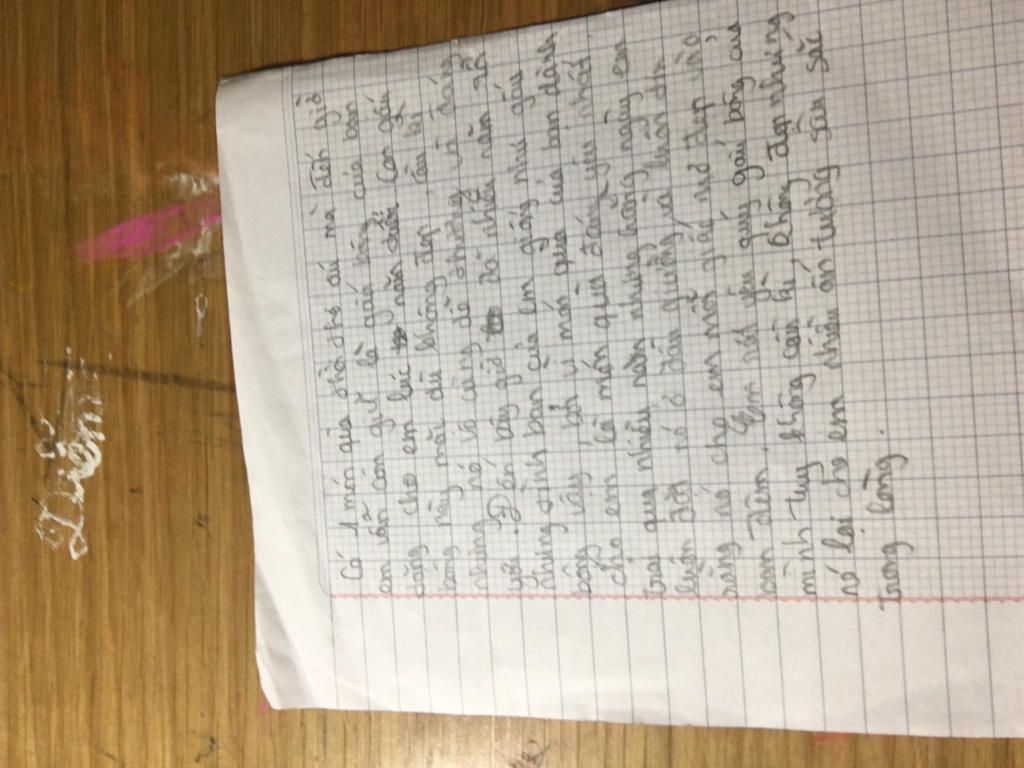 Điểm
Có 1 món quà thời thơ ấu mà đến giờ
em vẫn còn giữ là gấu bông của bạn
tặng cho em lúc năn đuổi Con gấu
bông này mãi dù không đẹp, lâu kì
nhưng nó vô cùng dễ thương và đáng
yêu. Đến bây giờ đã nhiều năm rồi
nhưng tình bạn của em giống như gấu
bông vậy, bởi vì món quà của bạn dành
cho em là món quà đáng yêu nhất.
Trải qua nhiều năm nhưng hằng ngày em
luôn nó ở đầu giường và luôn
rằng nó cho em mỗi giấc mơ đẹp vào
ban đêm. Em rất yêu quý gấu bông của
mình tuy không cầu kì, không đẹp nhưng
nó lại cho em nhiều ấn tượng sâu sắc
trong lòng.